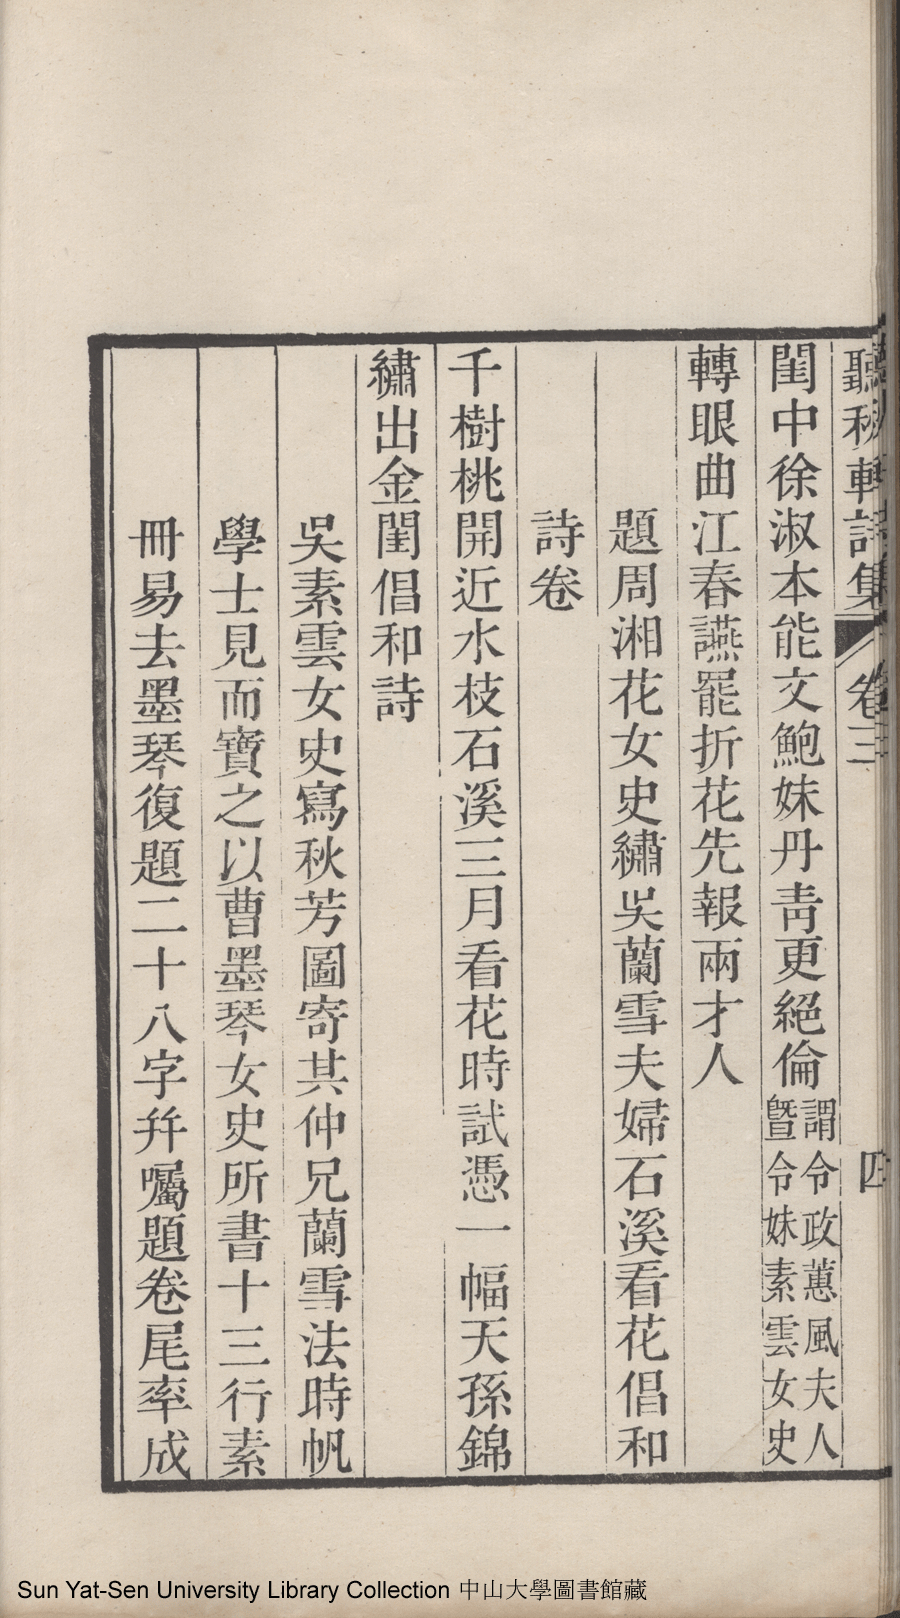 聽秋軒詩集 卷三 四
閨中徐淑本能文鮑妹丹靑更絕倫謂令政蕙風夫人曁令妹素雲女史
轉眼曲江春讌罷折花先報兩才人
題周湘花女史繡吳蘭雪夫婦石溪看花倡和
詩卷
千樹桃開近水枝石溪三月看花時試憑一幅天孫錦
繡出金閨倡和詩
吳素雲女史寫秋芳圖寄其仲兄蘭雪法時帆
學士見而寶之以曹墨琴女史所書十三行素
冊易去墨琴復題二十八字幷囑題卷尾率成
Sun Yat-Sen University Library Collection 中山大學圖書館藏